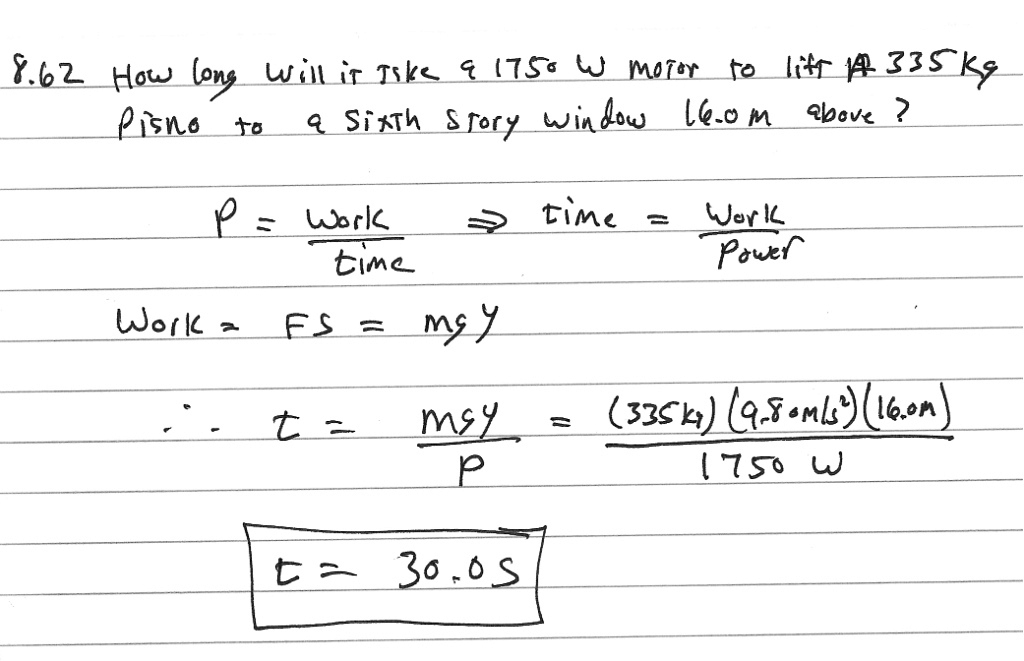 8.62 How long will it take a 1750 W motor to lift a 335 kg
piano to a sixth story window 16.0 m above?
P = Work / time ⇒ time = Work / Power
Work = FS = mgy
∴ t = mgy / P = (335 kg) (9.80 m/s²) (16.0m) / 1750 W
t = 30.0 s